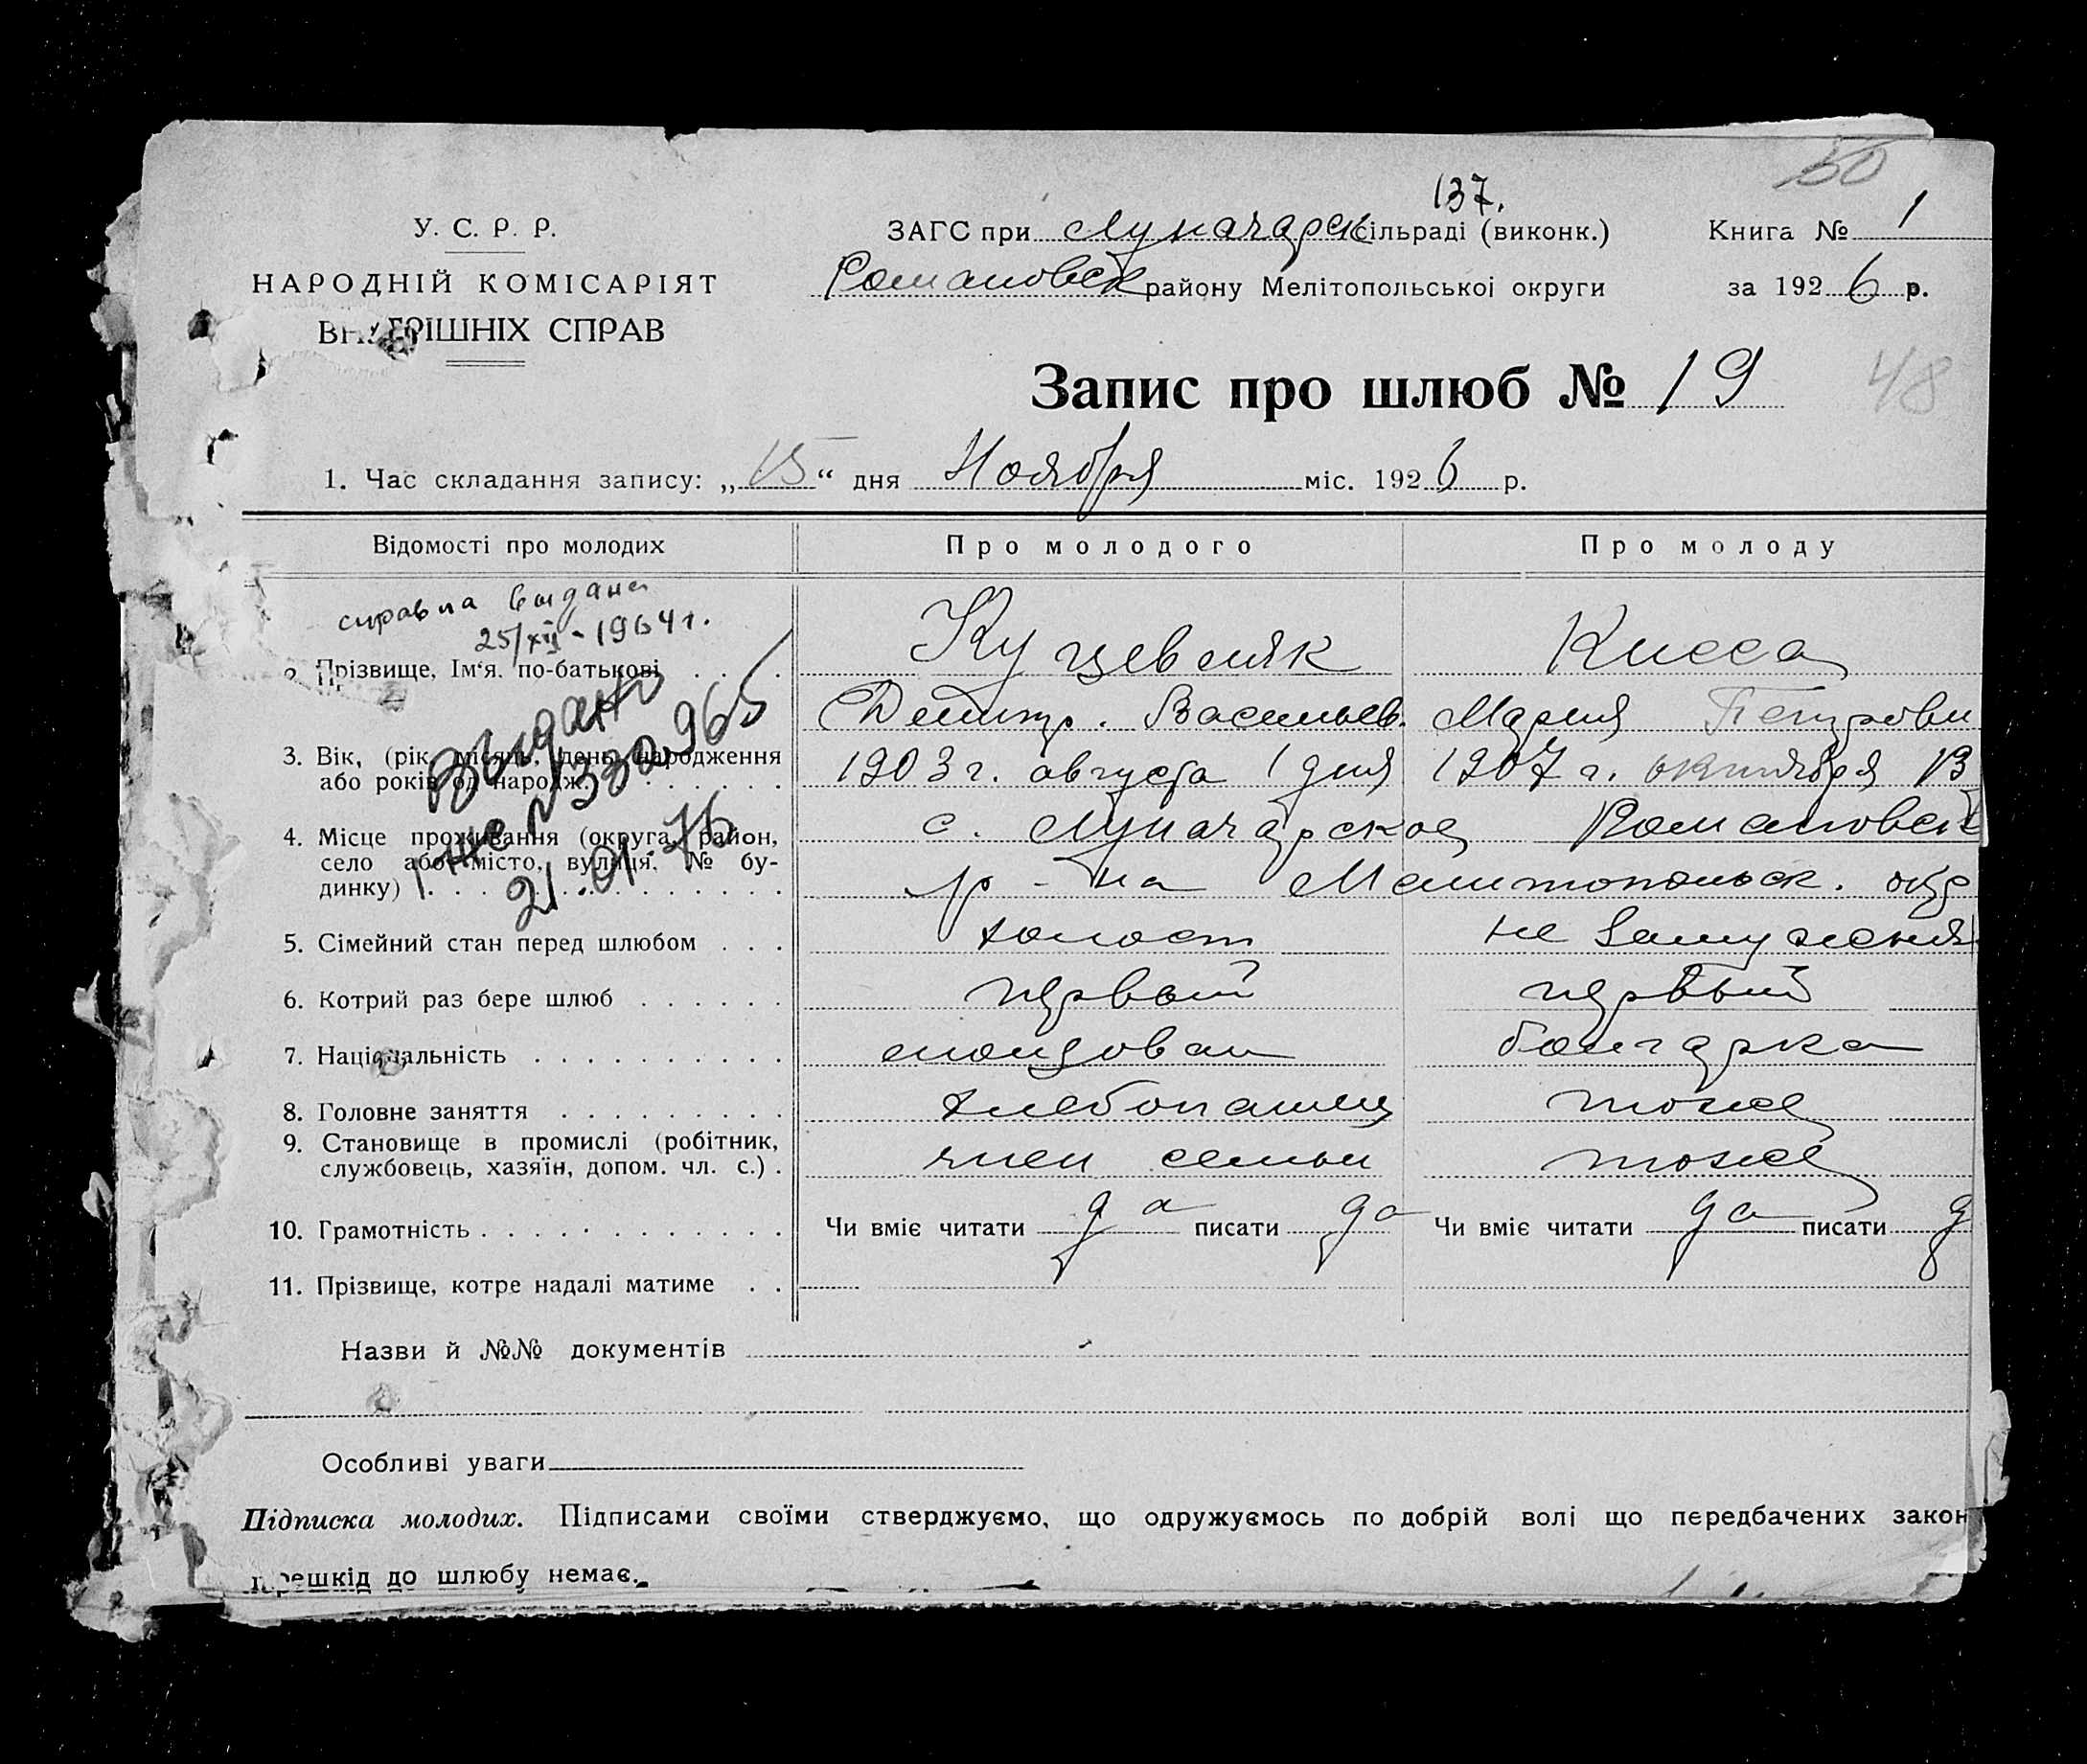 50
137.
У. С. Р. Р.
ЗАГС при Луначарск сільраді (виконк.)
Книга № 1
НАРОДНІЙ КОМІСАРІЯТ
Романовск району Мелітопольської округи
за 1926 р.
ВНУТРІШНІХ СПРАВ
Запис про шлюб № 19
48
1. Час складання запису: „15“ дня Ноября міс. 1926 р.
Відомості про молодих
Про молодого
Про молоду
справка выдана
25/XII - 1964 г.
2. Прізвище, Ім'я. по-батькові . . . .
Куцевляк
Кисса
Дмитр. Васильев.
Мария Петровн
Выдано
№ 330965
21.01.76
3. Вік, (рік, місяць, день народження
або років од народж. . . . . . . .
1903 г. августа 1 дня
1907 г. октября 13
4. Місце проживання (округа, район,
село або місто, вулиця, № бу-
динку) . . . . . . . . . . . .
с. Луначарское Романовск
р-на Мелитопольск. окр
5. Сімейний стан перед шлюбом . . .
холост
не замужняя
6. Котрий раз бере шлюб . . . . . .
первый
первый
7. Національність . . . . . . . . . .
молдован
болгарка
8. Головне заняття . . . . . . . . .
хлебопашец
тоже
9. Становище в промислі (робітник,
службовець, хазяїн, допом. чл. с.) .
член семьи
тоже
10. Грамотність . . . . . . . . . . . .
Чи вміє читати да писати да
Чи вміє читати да писати д
11. Прізвище, котре надалі матиме . .
Назви й №№ документів
Особливі уваги
Підписка молодих. Підписами своїми стверджуємо, що одружуємось по добрій волі що передбачених закон
перешкід до шлюбу немає.